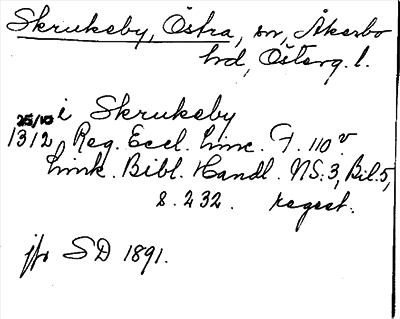 Skrukeby, Östra, sn, Åkerbo
hd, Österg. l.
25/10 i Skrukeby
1312 Reg. Eccl. Linc. F. 110 v
Link. Bibl. Handl. NS: 3, Bil. 5,
s. 232. regest.
jfr SD 1891.